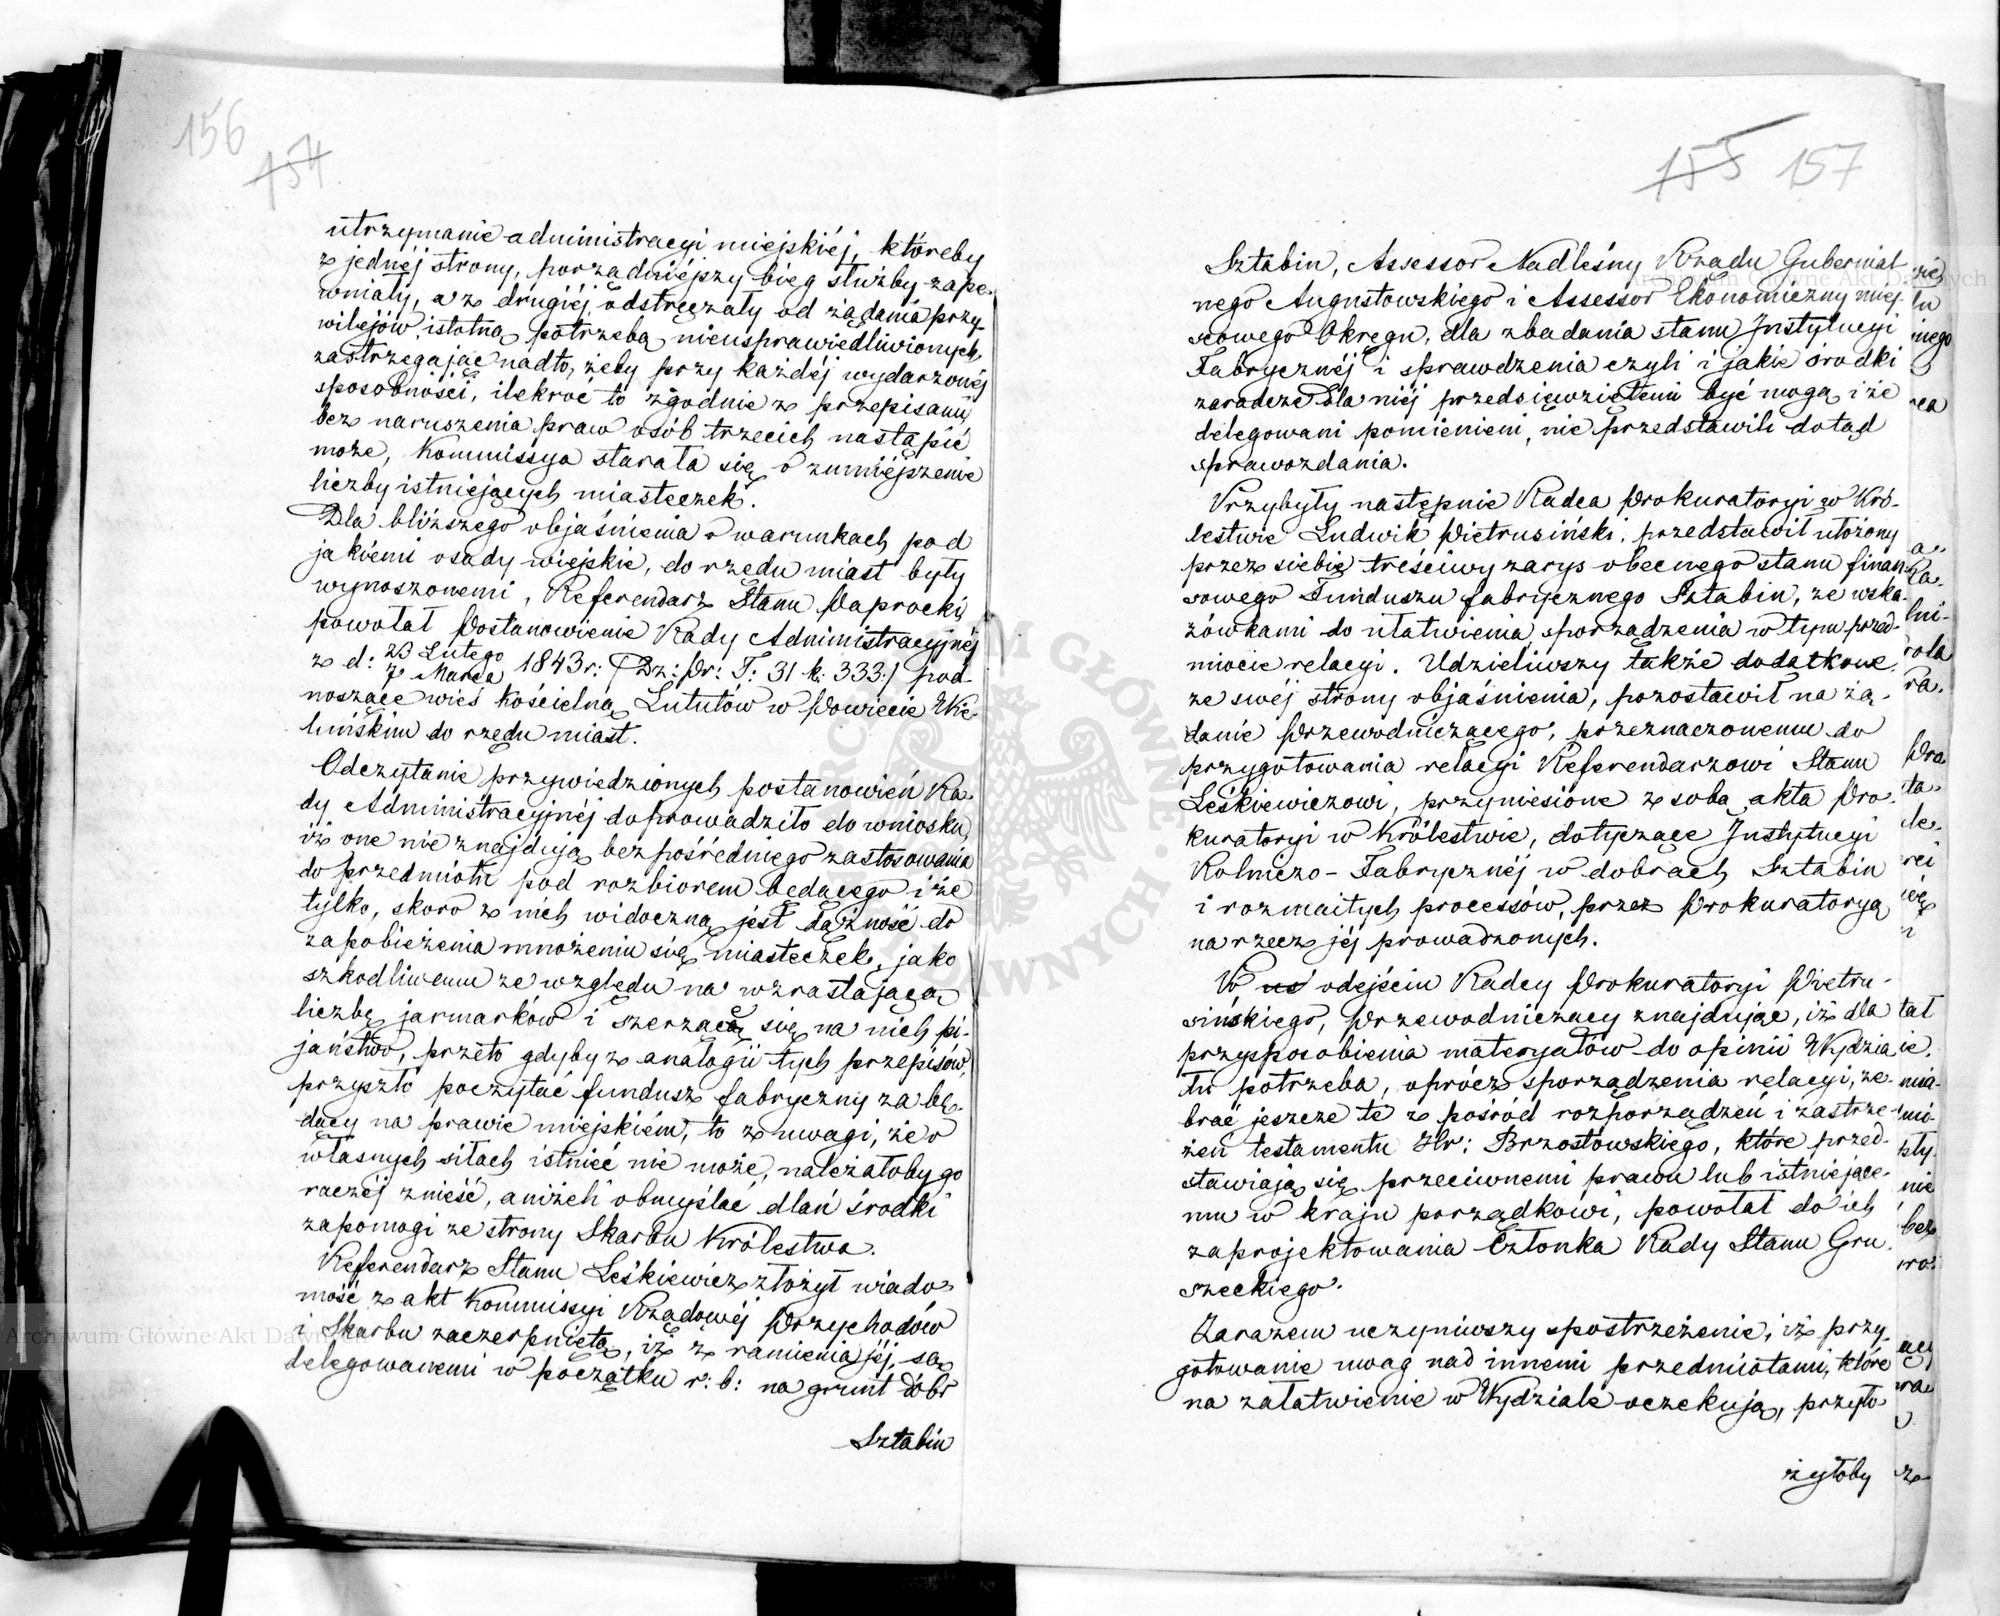 156
154
utrzymanie administracyi miejskiéj, któreby
z jednéj strony, porządniéjszy bieg służby zape-
wniały, a z drugiéj odstręczały od żądania przy-
wilejów istotną potrzebą nieusprawiedliwionych,
zastrzegając nadto, żeby przy każdéj wydarzonéj
sposobności, ilekroć to zgodnie z przepisami
bez naruszenia praw osób trzecich nastąpić
może, Kommissya starała się o zmniéjszenie
liczby istniejących miasteczek.
Dla bliższego objaśnienia o warunkach pod
jakiemi osady wiejskie, do rzędu miast były
wynoszonemi, Referendarz Stanu Paprocki
powołał Postanowienie Rady Administracyjnéj
z d: 23 Lutego
7 Marca 1843 r: (Dz: Pr: T: 31 k: 333:) pod-
noszące wieś kościelną Lututów w Powiecie Wie-
luńskim do rzędu miast.
Odczytanie przywiedzionych postanowień Ra-
dy Administracyjnéj doprowadziło do wniosku,
iż one nie znajdują bezpośredniego zastosowania
do przedmiotu pod rozbiorem będącego i że
tylko, skoro z nich widoczną jest dążność do
zapobieżenia mnożeniu się miasteczek, jako
szkodliwemu ze względu na wzrastającą
liczbę jarmarków i szerzące się na nich pi-
jaństwo, przeto gdyby z analogii tych przepisów,
przyszło poczytać fundusz fabryczny za bę-
dący na prawie miejskiém, to z uwagi, że o
własnych siłach istnieć nie może, należałoby go
raczéj znieść, aniżeli obmyślać dlań środki
zapomogi ze strony Skarbu Królestwa.
Referendarz Stanu Leśkiewicz złożył wiado-
mość z akt Kommissyi Rządowéj Przychodów
i Skarbu zaczerpniętą, iż z ramienia jéj, są
delegowanemi w początku r: b: na grunt dóbr
Sztabin
155 157
Sztabin, Assessor Nadleśny Rządu Gubernial-
nego Augustowskiego i Assessor Ekonomiczny miej-
scowego Okręgu, dla zbadania stanu Instytucyi
Fabrycznéj i sprawdzenia czyli i jakie środki
zaradcze dla niéj przedsięwziętemi być mogą i że
delegowani pomienieni, nie przedstawili dotąd
sprawozdania.
Przybyły następnie Radca Prokuratoryi w Kró-
lestwie Ludwik Pietrusiński, przedstawił ułożony
przez siebie treściwy zarys obecnego stanu finan-
sowego Funduszu fabrycznego Sztabin, ze wska-
zówkami do ułatwienia sporządzenia w tym przed-
miocie relacyi. Udzieliwszy także dodatkowe
ze swéj strony objaśnienia, pozostawił na żą-
danie Przewodniczącego, przeznaczonemu do
przygotowania relacyi Referendarzowi Stanu
Leśkiewiczowi, przyniesione z sobą akta Pro-
kuratoryi w Królestwie, dotyczące Instytucyi
Rolniczo-Fabrycznéj w dobrach Sztabin
i rozmaitych processów, przez Prokuratoryą
na rzecz jéj prowadzonych.
odejściu Radcy Prokuratoryi Pietru-
sińskiego, Przewodniczący znajdując, iż dla
przysposobienia materyałów do opinii Wydzia-
łu potrzeba, oprócz sporządzenia relacyi, ze-
brać jeszcze te z pośród rozporządzeń i zastrze-
żeń testamentu Hr: Brzostowskiego, które przed-
stawiają się przeciwnemi prawu lub istniejące-
mu w kraju porządkowi, powołał do ich
zaprojektowania Członka Rady Stanu Gru-
szeckiego.
Zarazem uczyniwszy spostrzeżenie, iż przy-
gotowanie uwag nad innemi przedmiotami, które
na załatwienie w Wydziale oczekują, przyło-
żyłoby
Archiwum Główne Akt Dawnych